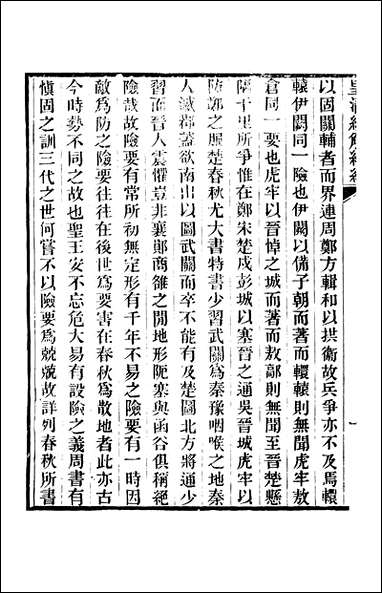 以固關輔者而界連周鄭方輯和以拱衛故兵爭亦不及焉轘
轅伊闕同一險也伊闕以備子朝而著而轘轅則無聞虎牢敖
倉同一要也虎牢以晉悼之城而著而敖鄗則無聞至晉楚懸
隔千里所爭惟在鄭宋楚戍彭城以塞晉之通吳晉城虎牢以
防鄭之服楚春秋尤大書特書少習武關爲秦豫咽喉之地秦
人滅鄀蓋欲南出以圖武關而卒不能有及楚圖北方將通少
習而晉人震懼豈非襄鄖商雒之間地形阨塞與函谷俱稱絕
險哉故險要有常所初無定形有千年不易之險要有一時因
敵爲防之險要往往在後世爲要害在春秋爲散地者此亦古
今時勢不同之故也聖王安不忘危大易有設險之義周書有
愼固之訓三代之世何嘗不以險要爲兢兢故詳列春秋所書
皇清經解續編